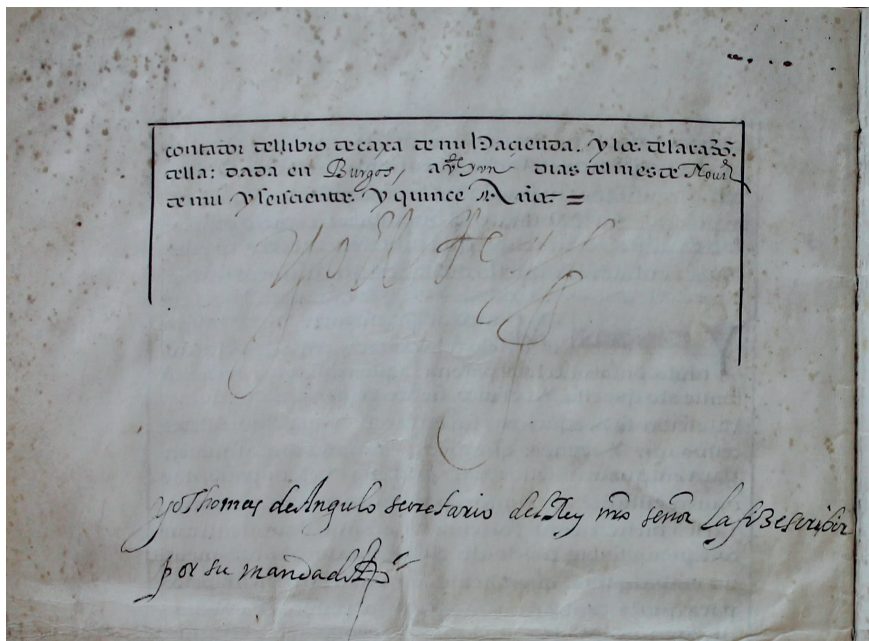 contador del libro de caxa de mi Haçienda. y los. de la razõ.
della: dada en Burgos, a dias del mes de Nouie
de mil y seiscientos. y quince Años. =
yo el Rey
yo Thomas de Angulo secretario del Rey nr̃o señor la fize escriuir
por su mandado